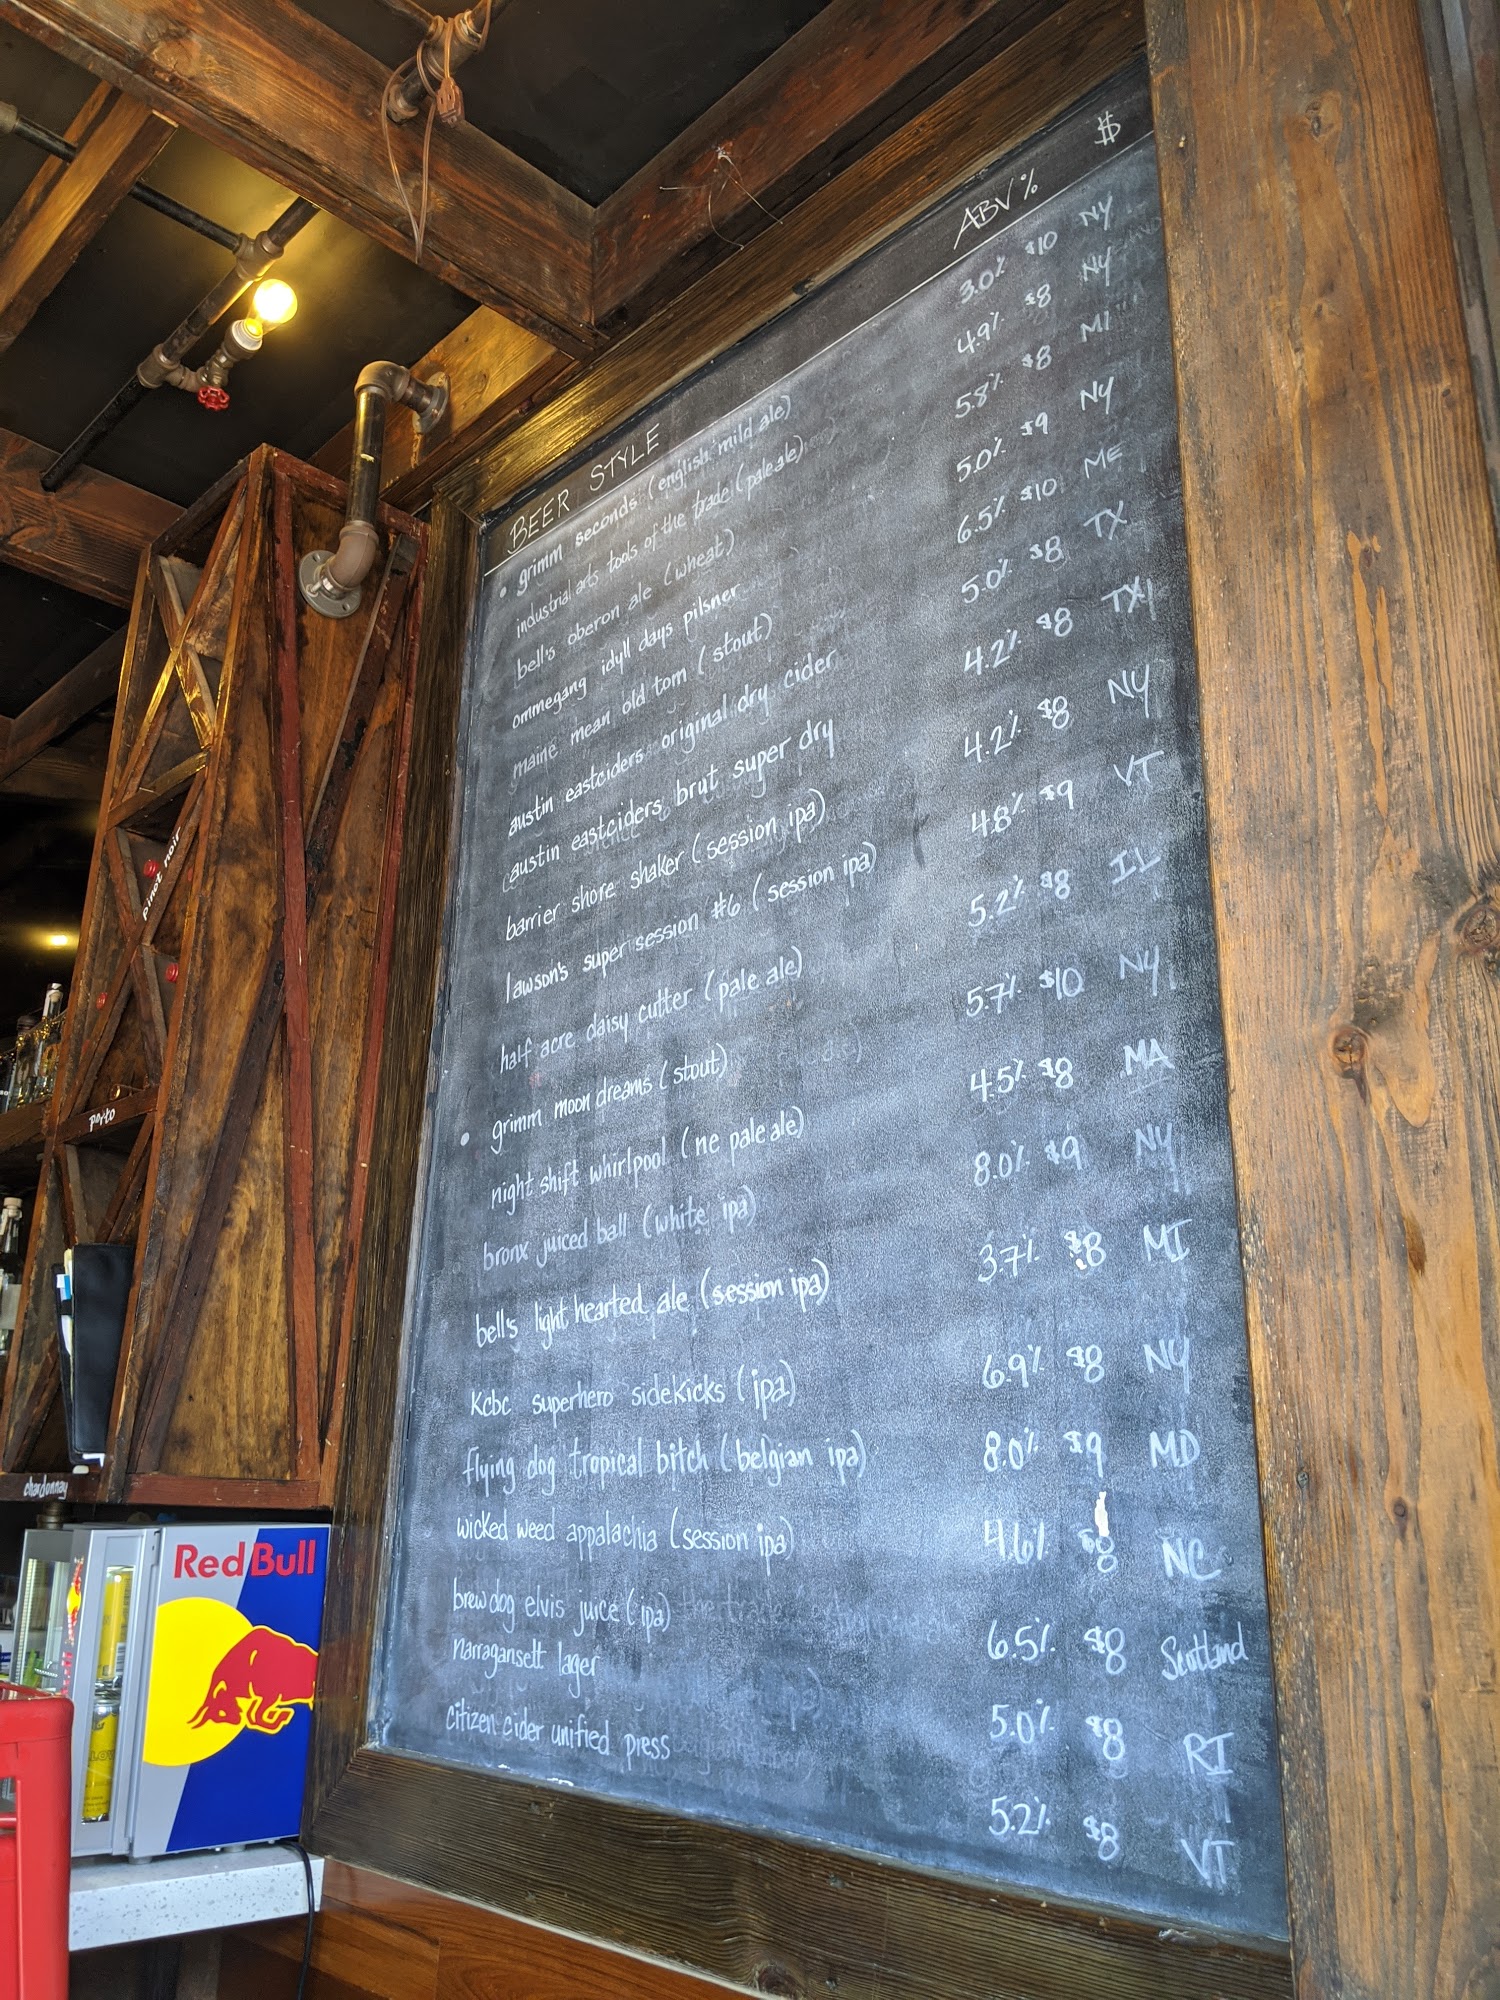 BEER STYLE ABV % $
• grimm seconds (english mild ale) 3.0% $10 NY
industrial arts tools of the trade (pale ale) 4.9% $8 NY
bell's oberon ale (wheat) 5.8% $8 MI
ommegang idyll days pilsner 5.0% $9 NY
maine mean old tom (stout) 6.5% $10 ME
austin eastciders original dry cider 5.0% $8 TX
austin eastciders brut super dry 4.2% $8 TX
barrier shore shaker (session ipa) 4.2% $8 NY
lawson's super session #6 (session ipa) 4.8% $9 VT
half acre daisy cutter (pale ale) 5.2% $8 IL
• grimm moon dreams (stout) 5.7% $10 NY
night shift whirlpool (ne pale ale) 4.5% $8 MA
bronx juiced ball (white ipa) 8.0% $9 NY
bell's light hearted ale (session ipa) 3.7% $8 MI
kcbc superhero sidekicks (ipa) 6.9% $8 NY
flying dog tropical bitch (belgian ipa) 8.0% $9 MD
wicked weed appalachia (session ipa) 4.6% $8 NC
brewdog elvis juice (ipa) 6.5% $8 Scotland
narragansett lager 5.0% $8 RI
citizen cider unified press 5.2% $8 VT
pinot noir
porto
chardonnay
Red Bull